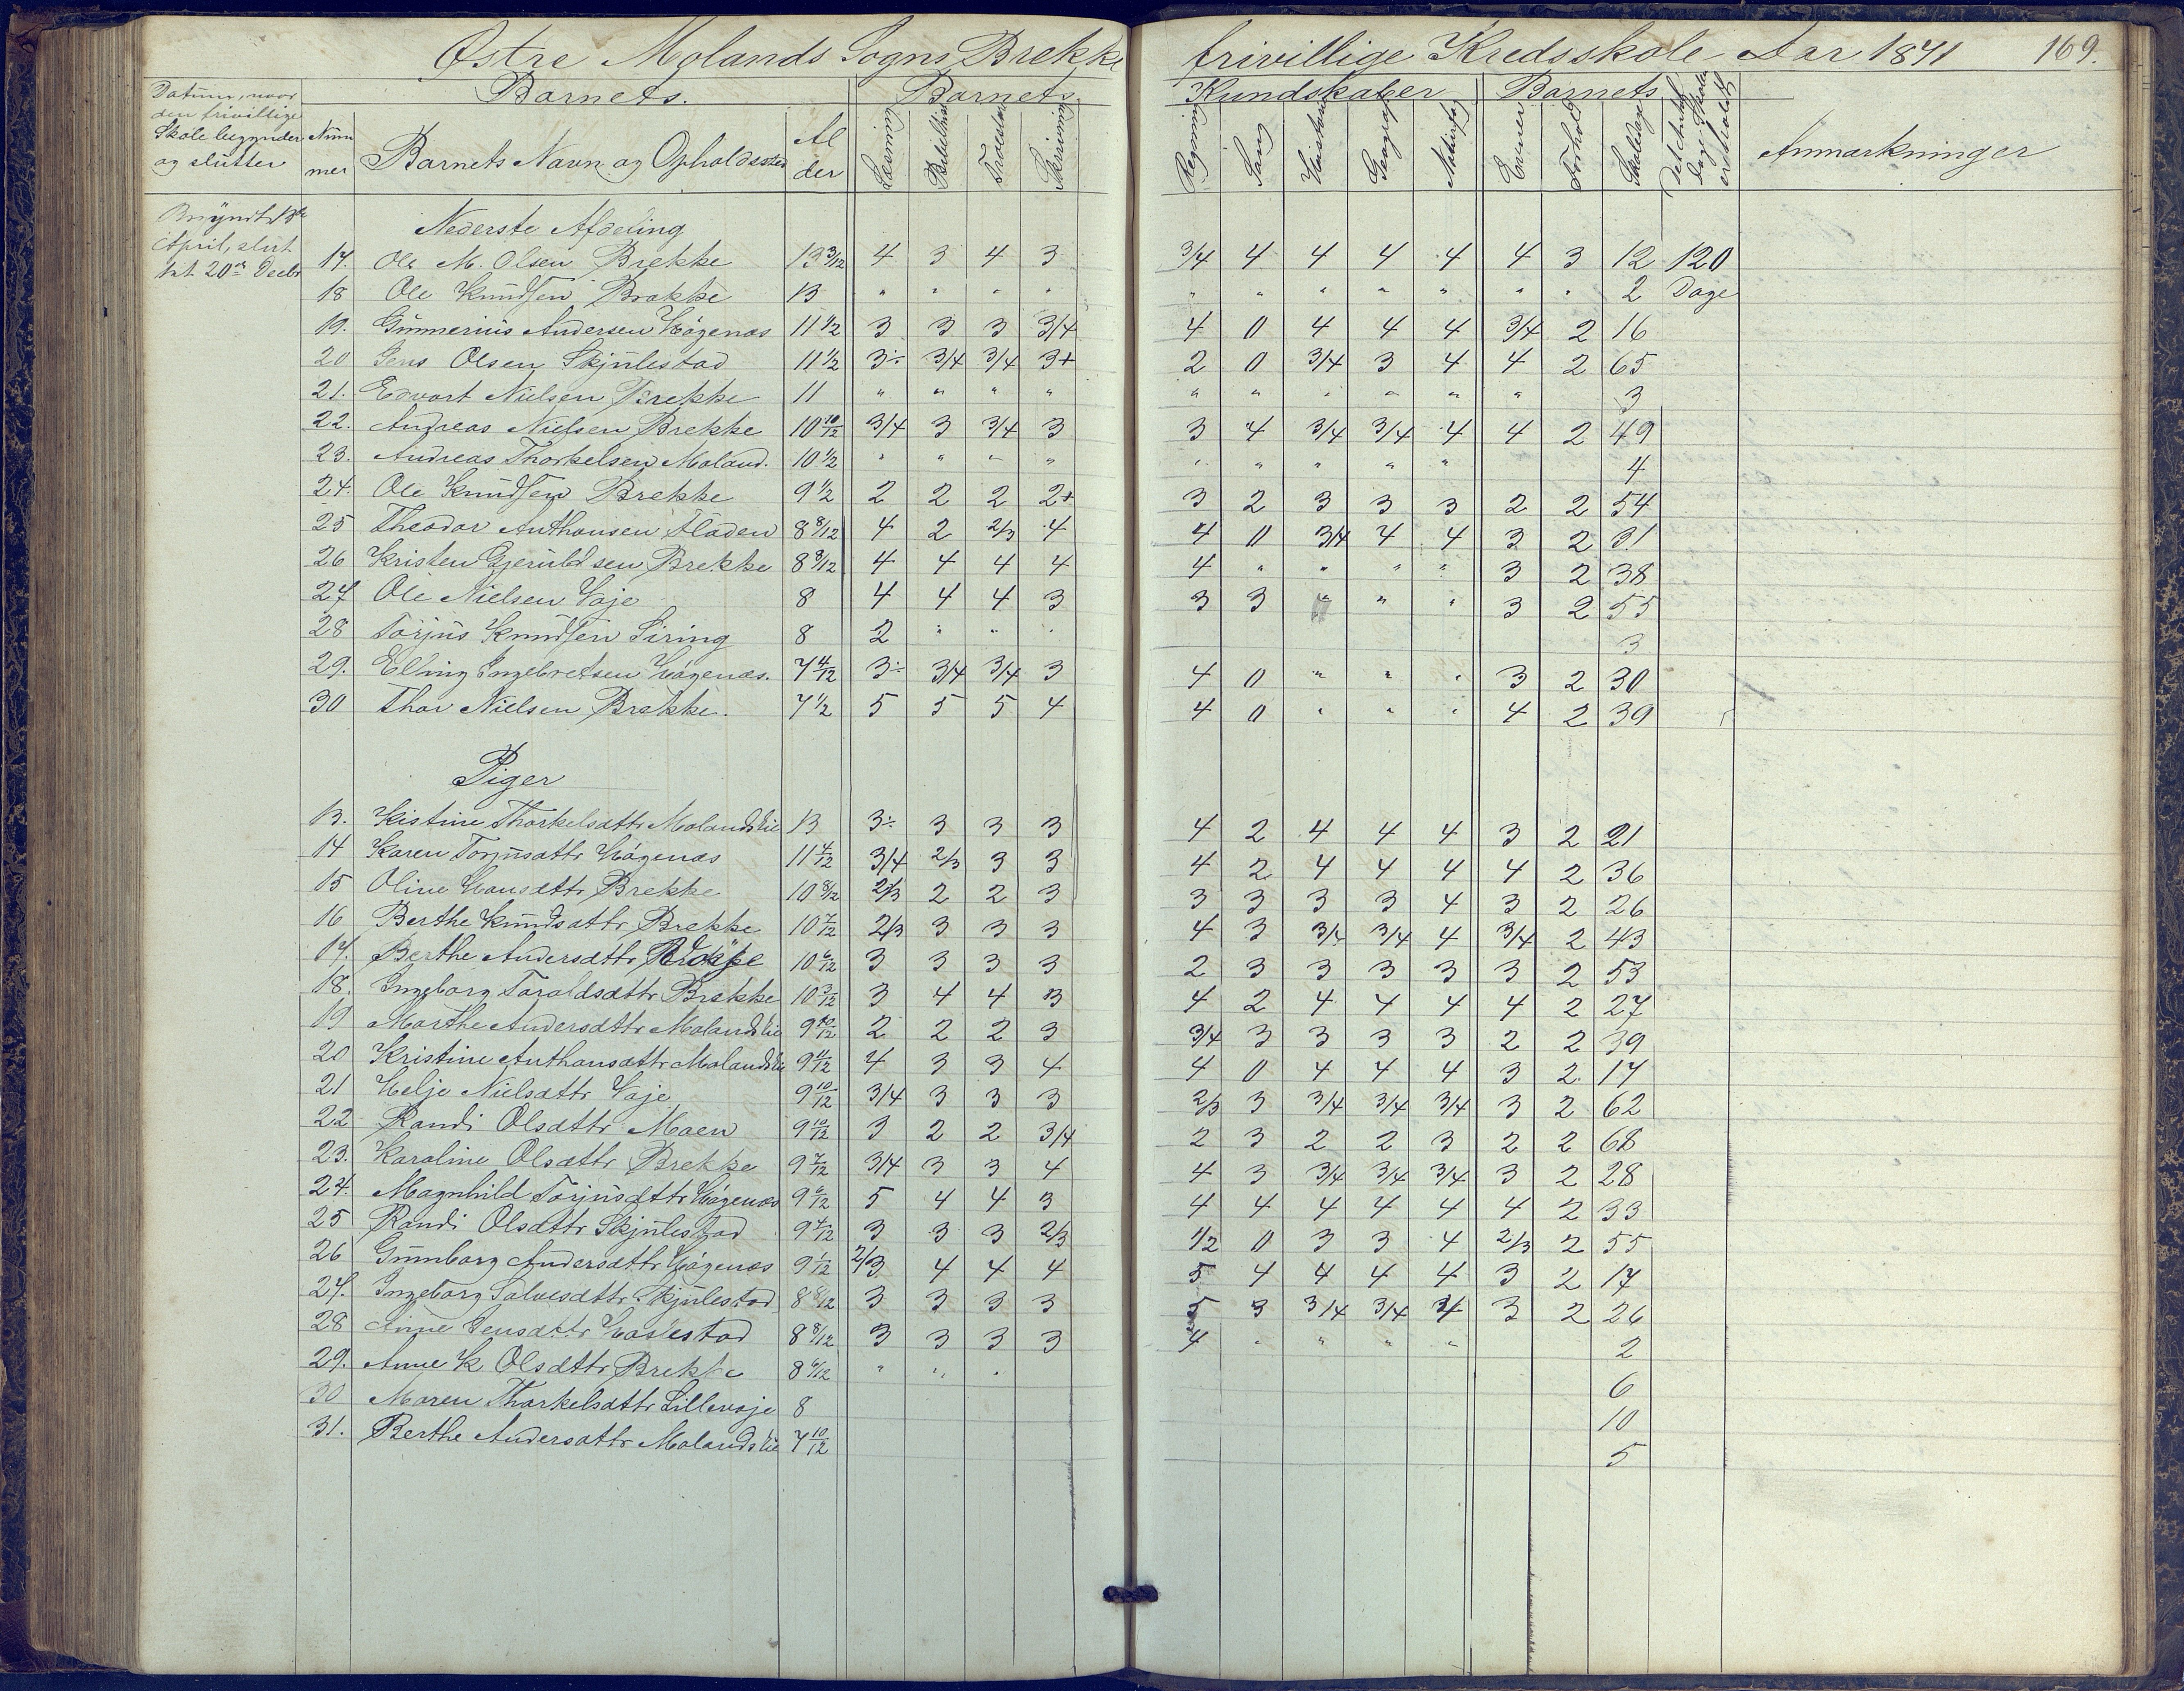 Østre Molands Sogns Brekke frivillige Kredsskole Aar 1871 169.
Datum, naar den frivillige Skole begynder og slutter
Barnets. Barnets Kundskaber Barnets
Nummer Barnets Navn og Opholdssted Alder Læsning Bibelhist Troeslær Skrivning Regning Sang Historie Geografi Naturfag Evner Forhold Skoledage Det Antal Dage Skolen er holdt Anmærkninger
Begyndt 18de April, slut
tet 20de Decbr
Nederste Afdeling
17. Ole M. Olsen Brekke 13 3/12 4 3 4 3 3/4 4 4 4 4 4 3 12 120
18 Ole Knudsen Brekke 13 " " " " " " " " " " " 2 Dage
19. Gunnerius Andersen Høgenæs 11 1/2 3 3 3 3/4 4 0 4 4 4 3/4 2 16
20 Jens Olsen Skjulestad 11 1/2 3÷ 3/4 3/4 3+ 2 0 3/4 3 4 4 2 65
21. Edvart Nielsen Brekke 11 " " " " " " " " " " 3
22. Andreas Nielsen Brekke 10 10/12 3/4 3 3/4 3 3 4 3/4 3/4 4 4 2 49
23. Andreas Thorkelsen Moland. 10 1/2 " " " " " " " " " 4
24. Ole Knudsen Brekke 9 1/2 2 2 2 2+ 3 2 3 3 3 2 2 54
25 Theodor Anthonsen Fladen 8 8/12 4 2 2/3 4 4 0 3/4 4 4 3 2 31
26 Kristen Gjeruldsen Brekke 8 8/12 4 4 4 4 4 " " " " 3 2 38
27 Ole Nielsen Vaje 8 4 4 4 3 3 3 " " " 3 2 55
28 Torjus Knudsen Liring 8 2 " " " 3
29. Elling Ingebretsen Høgenæs. 7 4/12 3÷ 3/4 3/4 3 4 0 " " " 3 2 30
30 Thor Nielsen Brekke. 7 1/2 5 5 5 4 4 0 " " " 4 2 39
Piger
13. Kistine Thorkelsdttr Molandslie 13 3÷ 3 3 3 4 2 4 4 4 3 2 21
14 Karen Torjusdttr Høgenæs 11 4/12 3/4 2/3 3 3 4 2 4 4 4 4 2 36
15 Oline Hansdttr Brekke 10 8/12 2/3 2 2 3 3 3 3 3 4 3 2 26
16 Berthe Knudsdttr Brekke 10 7/12 2/3 3 3 3 4 3 3/4 3/4 4 3/4 2 43
17. Berthe Andersdttr 10 6/12 3 3 3 3 2 3 3 3 3 3 2 53
18. Ingeborg Taraldsdttr Brekke 10 3/12 3 4 4 3 4 2 4 4 4 4 2 27
19 Marthe Andersdttr Molandslie 9 10/12 2 2 2 3 3/4 3 3 3 3 2 2 39
20 Kristine Anthonsdttr Molandslie 9 11/12 4 3 3 4 4 0 4 4 4 3 2 17
21 Helje Nielsdttr Vaje 9 10/12 3/4 3 3 3 2/3 3 3/4 3/4 3/4 3 2 62
22 Randi Olsdttr Moen 9 10/12 3 2 2 3/4 2 3 2 2 3 2 2 68
23. Karoline Olsdttr Brekke 9 7/12 3/4 3 3 4 4 3 3/4 3/4 3/4 3 2 28
24. Magnhild Torjusdttr Høgenæs 9 6/12 5 4 4 3 4 4 4 4 4 4 2 33
25 Randi Olsdttr Skjulestad 9 4/12 3 3 3 2/3 1/2 0 3 3 4 2/3 2 55
26 Gunnborg Andersdttr Høgenæs 9 1/12 2/3 4 4 4 5 4 4 4 4 3 2 17
27. Ingeborg Salvesdttr Skjulestad 8 8/12 3 3 3 3 5 3 3/4 3/4 3/4 3 2 26
28 Anne Jensdttr 8 8/12 3 3 3 3 4 " " " " 2
29. Anne K Olsdttr Brekke 8 6/12 " " " 6
30 Maren Thorkelsdttr Lillevaje 8 10
31. Berthe Andersdttr Molandslie 7 10/12 5